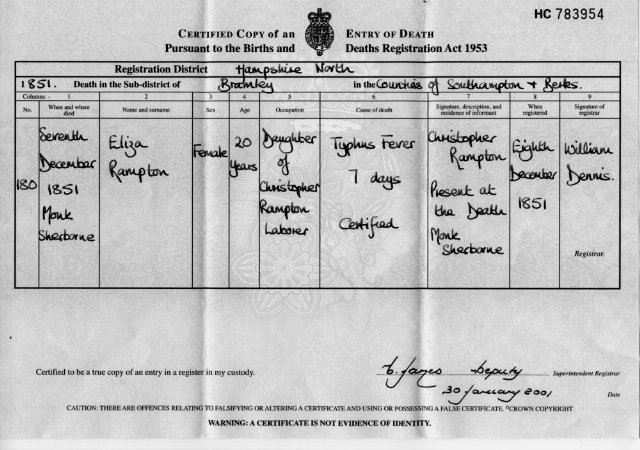 HC 783954
CERTIFIED COPY of an ENTRY OF DEATH
Pursuant to the Births and Deaths Registration Act 1953
Registration District Hampshire North
1851. Death in the Sub-district of Bramley in the Counties of Southampton & Berks.
Columns:- 1 2 3 4 5 6 7 8 9
No. When and where died Name and surname Sex Age Occupation Cause of death Signature, description, and residence of informant When registered Signature of registrar
180 Seventh December 1851 Monk Sherborne
Eliza Rampton
Female
20 years
Daughter of Christopher Rampton Laborer
Typhus Fever 7 days Certified
Christopher Rampton Present at the Death Monk Sherborne
Eighth December 1851
William Dennis.
Registrar.
Certified to be a true copy of an entry in a register in my custody.
James Deputy Superintendent Registrar
30 January 2001 Date
CAUTION: THERE ARE OFFENCES RELATING TO FALSIFYING OR ALTERING A CERTIFICATE AND USING OR POSSESSING A FALSE CERTIFICATE. ©CROWN COPYRIGHT
WARNING: A CERTIFICATE IS NOT EVIDENCE OF IDENTITY.